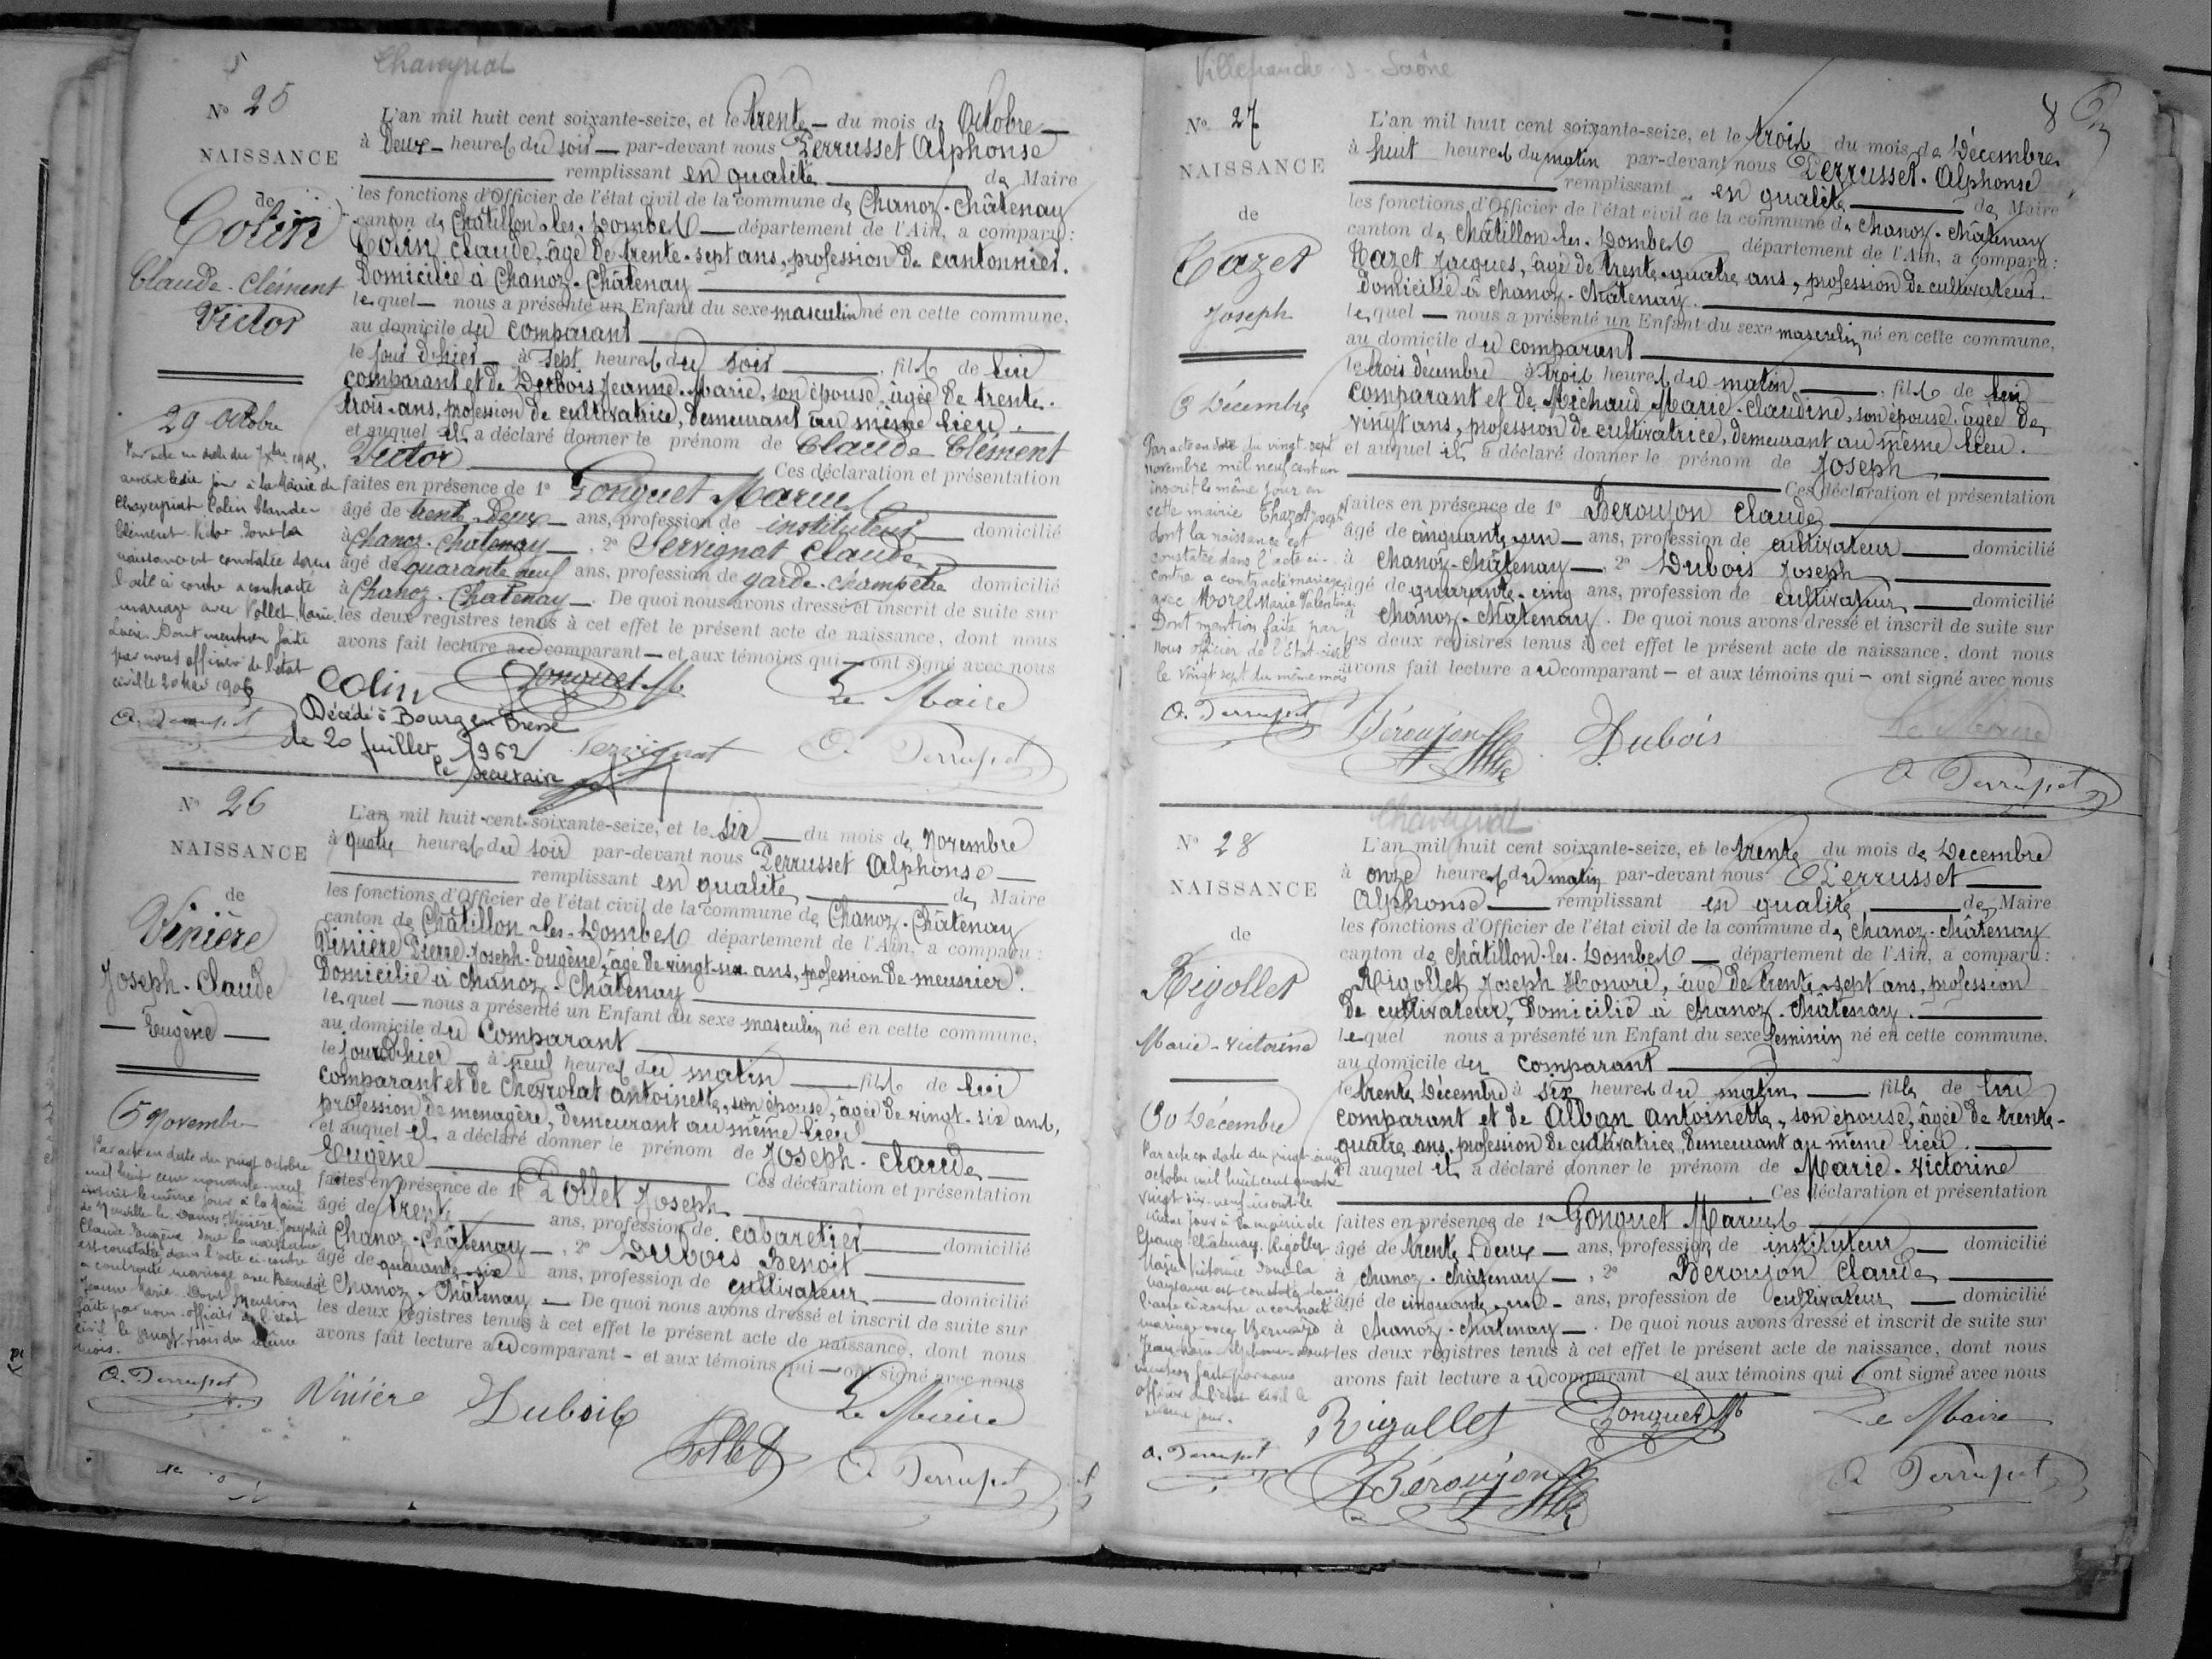 Chaveyriat
N° 25
NAISSANCE
de
Colin
Claude-Clément
Victor
29 Octobre
L'an mil huit cent soixante-seize, et le trente du mois de Octobre
à Deux heures du soir par-devant nous Perrusset Alphonse
remplissant en qualité de Maire
les fonctions d'Officier de l'état civil de la commune de Chanoz-Châtenay
canton de Châtillon-les-Dombes département de l'Ain, a comparu :
Colin Claude, âgé de trente-sept ans, profession de cantonnier.
Domicilié à Chanoz-Châtenay
lequel nous a présenté un Enfant du sexe masculin né en cette commune,
au domicile du comparant
le jour d'hier à sept heures du soir, fils de lui
comparant et de Dubois Jeanne-Marie, son épouse, âgée de trente-
trois ans, profession de cultivatrice, demeurant au même lieu.
et auquel il a déclaré donner le prénom de Claude Clément
Victor Ces déclaration et présentation
faites en présence de 1° Gonguet Marius
âgé de trente-Deux ans, profession de instituteur domicilié
à Chanoz-Châtenay, 2° Servignat Claude
âgé de quarante neuf ans, profession de garde-champêtre domicilié
à Chanoz-Châtenay. De quoi nous avons dressé et inscrit de suite sur
les deux registres tenus à cet effet le présent acte de naissance, dont nous
avons fait lecture au comparant et aux témoins qui ont signé avec nous
1905,
à la Mairie de
Chaveyriat Colin Claude-
Clément-Victor dont la
naissance est constatée dans
l'acte ci-contre a contracté
mariage avec Pollet Marie
Dont mention faite
par nous officier de l'état
civil le 20 1906
Colin
Gonguet M.
Le Maire
Décédé à Bourg en Bresse
le 20 juillet 1962
le secretaire
Servignat
A. Perrusset
N° 26
NAISSANCE
de
Vinière
Joseph-Claude
Eugène
5 Novembre
L'an mil huit cent soixante-seize, et le six du mois de Novembre
à quatre heures du soir par-devant nous Perrusset Alphonse
remplissant en qualité de Maire
les fonctions d'Officier de l'état civil de la commune de Chanoz-Châtenay
canton de Châtillon-les-Dombes département de l'Ain, a comparu :
Vinière Pierre-Joseph-Eugène, âgé de vingt-six ans, profession de meunier.
Domicilié à Chanoz-Châtenay
lequel nous a présenté un Enfant du sexe masculin né en cette commune,
au domicile du Comparant
le jour d'hier à neuf heures du matin fils de lui
comparant et de Chevrolat Antoinette, son épouse, âgée de vingt-six ans,
profession de ménagère, demeurant au même lieu
et auquel il a déclaré donner le prénom de Joseph-Claude
Eugène Ces déclaration et présentation
faites en présence de 1° Pollet Joseph
âgé de trente ans, profession de cabaretier domicilié
à Chanoz-Châtenay, 2° Dubois Benoît
âgé de quarante-six ans, profession de cultivateur domicilié
à Chanoz-Châtenay. De quoi nous avons dressé et inscrit de suite sur
les deux registres tenus à cet effet le présent acte de naissance, dont nous
avons fait lecture au comparant et aux témoins qui ont signé avec nous
Par acte en date du vingt octobre
mil huit cent nonante-neuf
inscrit le même jour à la Mairie
de Neuville-les-Dames, Vinière Joseph
Claude Eugène dont la naissance
est constatée dans l'acte ci-contre
a contracté mariage avec
Jeanne Marie. Dont mention
faite par nous officier de l'état
civil le vingt-trois du même
mois.
A. Perrusset
Vinière
Dubois
Pollet
Le Maire
A. Perrusset
Villefranche s. Saône
8
N° 27
NAISSANCE
de
Tazet
Joseph
3 Décembre
L'an mil huit cent soixante-seize, et le trois du mois de Décembre
à huit heures du matin par-devant nous Perrusset Alphonse
remplissant en qualité de Maire
les fonctions d'Officier de l'état civil de la commune de Chanoz-Châtenay
canton de Châtillon-les-Dombes département de l'Ain, a comparu :
Tazet Jacques, âgé de trente-quatre ans, profession de cultivateur.
Domicilié à Chanoz-Châtenay.
lequel nous a présenté un Enfant du sexe masculin né en cette commune,
au domicile du comparant
le trois décembre à trois heures du matin, fils de lui
comparant et de Michaud Marie-Claudine, son épouse, âgée de
vingt ans, profession de cultivatrice, demeurant au même lieu.
et auquel il a déclaré donner le prénom de Joseph
Ces déclaration et présentation
faites en présence de 1° Beroujon Claude
âgé de cinquante-un ans, profession de cultivateur domicilié
à Chanoz-Châtenay, 2° Dubois Joseph
âgé de quarante-cinq ans, profession de cultivateur domicilié
à Chanoz-Châtenay. De quoi nous avons dressé et inscrit de suite sur
les deux registres tenus à cet effet le présent acte de naissance, dont nous
avons fait lecture au comparant et aux témoins qui ont signé avec nous
Par acte en date du vingt-sept
novembre mil neuf cent un
inscrit le même jour en
cette mairie Thazet Joseph
dont la naissance est
constatée dans l'acte ci-
contre a contracté mariage
avec Morel Marie Valentine
Dont mention faite par
nous officier de l'état-civil
le vingt sept du même mois
A. Perrusset
Béroujon
Dubois
Le Maire
A. Perrusset
Chaveyriat
N° 28
NAISSANCE
de
Rigollet
Marie-Victorine
30 Décembre
L'an mil huit cent soixante-seize, et le trente du mois de Decembre
à onze heures du matin par-devant nous Perrusset
Alphonse remplissant en qualité de Maire
les fonctions d'Officier de l'état civil de la commune de Chanoz-Châtenay
canton de Châtillon-les-Dombes département de l'Ain, a comparu :
Rigollet Joseph Honoré, âgé de trente-sept ans, profession
de cultivateur, Domicilié à Chanoz-Châtenay.
lequel nous a présenté un Enfant du sexe feminin né en cette commune,
au domicile du comparant
le trente Décembre à six heures du matin fille de lui
comparant et de Alban Antoinette, son épouse, âgée de trente-
quatre ans, profession de cultivatrice, demeurant au même lieu.
et auquel il a déclaré donner le prénom de Marie-Victorine
Ces déclaration et présentation
faites en présence de 1° Gonguet Marius
âgé de trente-deux ans, profession de instituteur domicilié
à Chanoz-Châtenay, 2° Beroujon Claude
âgé de cinquante-un ans, profession de cultivateur domicilié
à Chanoz-Châtenay. De quoi nous avons dressé et inscrit de suite sur
les deux registres tenus à cet effet le présent acte de naissance, dont nous
avons fait lecture au comparant et aux témoins qui ont signé avec nous
Par acte en date du vingt-cinq
octobre mil huit cent quatre
vingt-dix-neuf inscrit le
même jour à la mairie de
Chanoz-Châtenay Rigollet
Marie Victorine dont la
naissance est constatée dans
l'acte ci-contre a contracté
mariage avec Bernard
Jean-Marie Alphonse dont
mention faite par nous
officier de l'état civil le
même jour.
A. Perrusset
Rigollet
Gonguet M
Le Maire
Béroujon
A. Perrusset